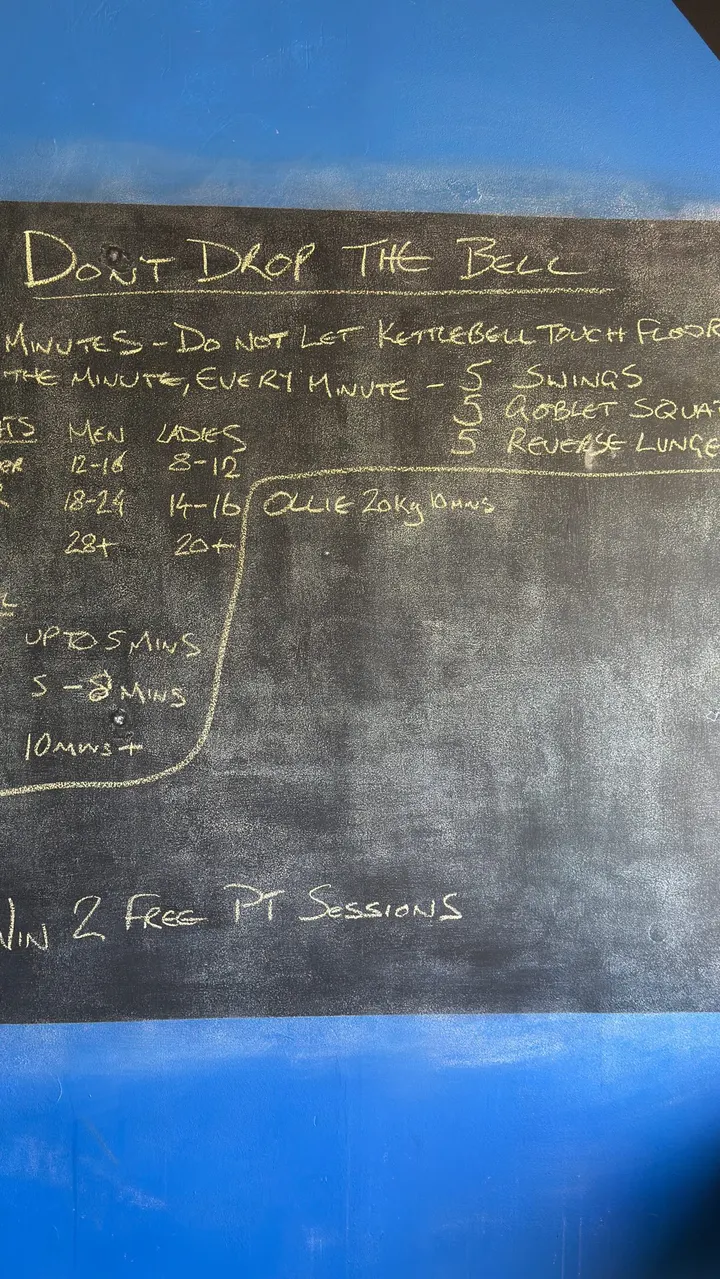 DON'T DROP THE BELL
MINUTES - DO NOT LET KETTLEBELL TOUCH FLOOR
THE MINUTE, EVERY MINUTE - 5 SWINGS
5 GOBLET SQUAT
5 REVERSE LUNGE
MEN LADIES
12-16 8-12
18-24 14-16
28+ 20+
OLLIE 20Kg 10MINS
UP TO 5 MINS
5 - 8 MINS
10MINS+
WIN 2 FREE PT SESSIONS